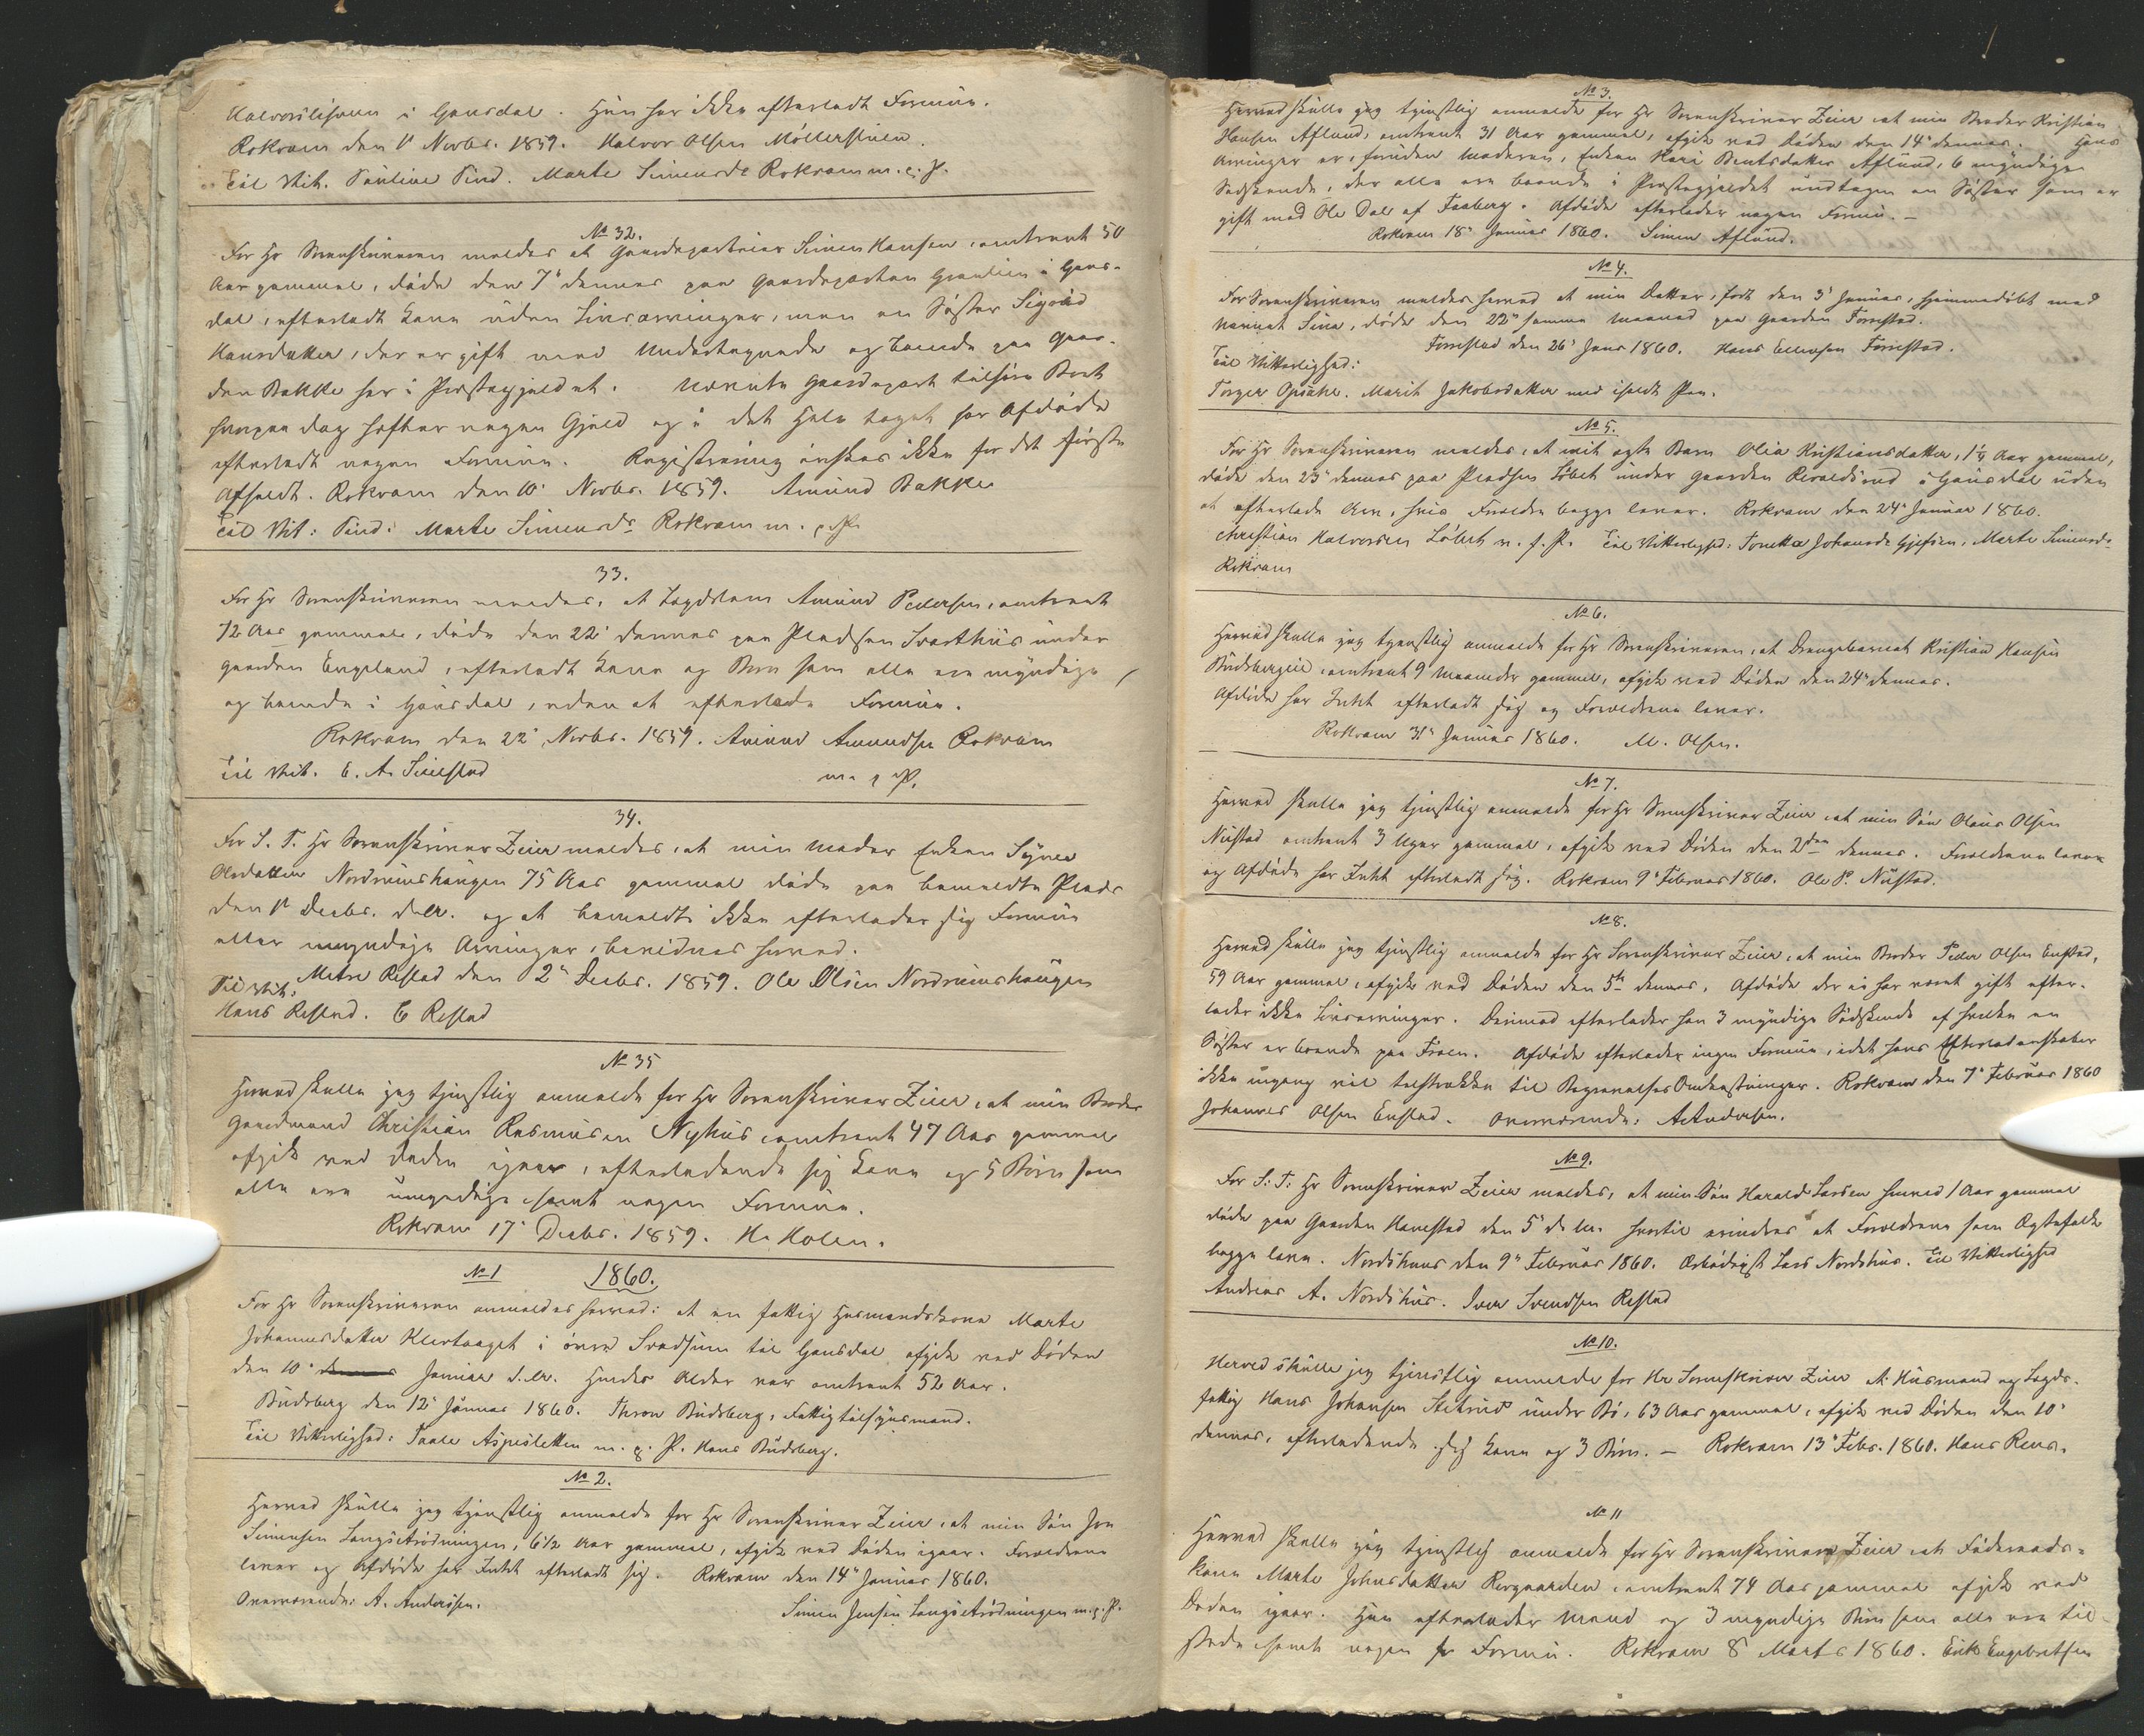 Halvorsliseen i Gausdal. Hun har ikke efterladt Formue.
Rokvam den 1' Novbr. 1859. Halvor Olsen Møllerstuen.
Til Vit. Pauline Lind. Marte Simensdr Rokvam m. i. P.
No 32.
For Hr Sorenskriveren meldes at Gaardparteier Simen Hansen, omtrent 50
Aar gammel, døde den 7' dennes paa Gaardparten i Gaus-
dal, efterladt Kone uden Livsarvinger, men en Søster Sigrid
Hansdatter, der er gift med Undertegnede og boende paa Gaar-
den Bakke her i Præstegjeldet. Nævnte Gaardpart tilhører
hvorpaa dog hefter nogen Gjeld og i det Hele taget har Afdøde
efterladt nogen Formue. Registrering ønskes ikke for det første
afholdt. Rokvam den 10' Novbr. 1859. Amund Bakke
Til Vit: Lind. Marte Simensdr Rokvam m. i. P.
33.
For Hr Sorenskriveren meldes, at Lægdslem Amund Pedersen, omtrent
72 Aar gammel, døde den 22' dennes paa Pladsen Svarthus under
Gaarden Engeland, efterladt Kone og Børn som alle ere myndige
og boende i Gausdal, uden at efterlade Formue.
Rokvam den 22' Novbr. 1859. Amund Amundsen Rokvam
Til Vit. E. A. m. i P.
34.
For S. T. Hr Sorenskriver Zeier meldes, at min Moder Enken Synev
Olsdatter Nordrumshaugen 75 Aar gammel døde paa bemeldte Plads
den 1' Decbr. d. A. og at bemeldte ikke efterlader sig Formue
eller umyndige Arvinger, bevidnes herved.
Metre Restad den 2' Decbr. 1859. Ole Olsen Nordrumshaugen
Til Vit:
Hans Restad. E Restad
No 35
Herved skulle jeg tjenstlig anmelde for Hr Sorenskriver Zeier, at min Broder
Gaardmand Christian Rasmusen Nyhus omtrent 47 Aar gammel
afgik ved Døden igaar, efterladende sig Kone og 5 Børn som
alle ere umyndige samt nogen Formue.
Rokvam 17' Decbr. 1859. H. Holen.
No 1 1860.
For Hr Sorenskriveren anmeldes herved: at en fattig Husmandskone Marte
Johannesdatter i øvre Svadsum til Gausdal afgik ved Døden
den 10' Januar d. A. Hendes Alder var omtrent 52 Aar.
Budsberg den 12' Januar 1860. Thron Budsberg, Fattigtilsynsmand.
Til Vitterlighed: Paale Aspesletten m. i. P. Hans Budsberg.
No 2.
Herved skulle jeg tjenstlig anmelde for Hr Sorenskriver Zeier, at min Søn Jon
Simensen Langsetrødningen, 6 1/2 Aar gammel, afgik ved Døden igaar. Forældrene
lever og Afdøde har Intet efterladt sig. Rokvam den 14' Januar 1860.
Overværende: A. Andersen. Simen Jensen Langsetrødningen m. i. P.
No 3.
Herved skulle jeg tjenstlig anmelde for Hr Sorenskriver Zeier at min Broder Kristian
Hansen Aflund, omtrent 31 Aar gammel, afgik ved Døden den 14' dennes. Hans
Arvinger er, foruden Moderen, Enken Kari Berntsdatter Aflund, 6 myndige
Sødskende, der alle ere boende i Præstegjeldet undtagen en Søster som er
gift med Ole Dal af Faaberg. Afdøde efterlader nogen Formue.–
Rokvam 18' Januar 1860. Simen Aflund.
No 4.
For Sorenskriveren meldes herved at min Datter, født den 3' Januar, hjemmedøbt med
Navnet Sina, døde den 22' samme Maaned paa Gaarden Forrestad.
Forrestad den 26' Janr 1860. Hans Ellevsen Forrestad.
Til Vitterlighed:
Torger Opsahl. Marit Jakobsdatter med iholdt Pen.
No 5.
For Hr Sorenskriveren meldes, at mit ægte Barn Olia Kristiansdatter, 1 1/4 Aar gammel,
døde den 23' dennes paa Pladsen Løbet under Gaarden i Gausdal uden
at efterlade Arv, hvis Forældre begge lever. Rokvam den 24' Januar 1860.
Christian Halvorsen Løbet m. i. P. Til Vitterlighed: Tonetta Johansdr Gjefsen, Marte Simensdr
Rokvam
No 6.
Herved skulle jeg tjenstlig anmelde for Hr Sorenskriveren, at Drengebarnet Kristian Hansen
Budsbergeie, omtrent 9 Maaneder gammel, afgik ved Døden den 24' dennes.
Afdøde har Intet efterladt sig og Forældrene lever.
Rokvam 31' Januar 1860. M. Olsen.
No 7.
Herved skulle jeg tjenstlig anmelde for Hr Sorenskriver Zeier at min Søn Olaus Olsen
Nustad omtrent 3 Uger gammel, afgik ved Døden den 2den dennes. Forældrene lever
og Afdøde har Intet efterladt sig. Rokvam 9' Februar 1860. Ole P. Nustad.
No 8.
Herved skulle jeg tjenstlig anmelde for Hr Sorenskriver Zeier, at min Broder Peder Olsen Enstad,
59 Aar gammel, afgik ved Døden den 5te dennes. Afdøde der ei har været gift efter-
lader ikke Livsarvinger. Derimod efterlader han 3 myndige Sødskende af hvilke en
Søster er boende paa Froen. Afdøde efterlader ingen Formue, idet hans Efterladenskaber
ikke engang vil tilstrække til Begravelses Omkostninger. Rokvam den 7' Februar 1860
Johannes Olsen Enstad. Overværende: A. Andersen.
No 9.
For S. T. Hr Sorenskriver Zeier meldes, at min Søn Harald Larsen henved 1 Aar gammel
døde paa Gaarden Havestad den 5' d. M. hvortil erindres at Forældrene som Ægtefolk
begge leve. Nordshuus den 9' Februar 1860. Ærbødigst Lars Nordshus. Til Vitterlighed
Andreas A. Nordshus. Iver Svendsen Restad
No 10.
Herved skulle jeg tjenstlig anmelde for Hr Sorenskriver Zeier At Husmand og Lægds-
fattig Hans Johansen under Bø, 63 Aar gammel, afgik ved Døden den 10'
dennes, efterladende sig Kone og 3 Børn. – Rokvam 13' Febr. 1860. Hans Rens.
No 11
Herved skulle jeg tjenstlig anmelde for Hr Sorenskriver Zeier at Føderaads-
kone Marte Johnsdatter omtrent 74 Aar gammel afgik ved
Døden igaar. Hun efterlader Mand og 3 myndige Børn som alle ere til
stede samt nogen Formue. Rokvam 8 Marts 1860. Erik Engebretsen